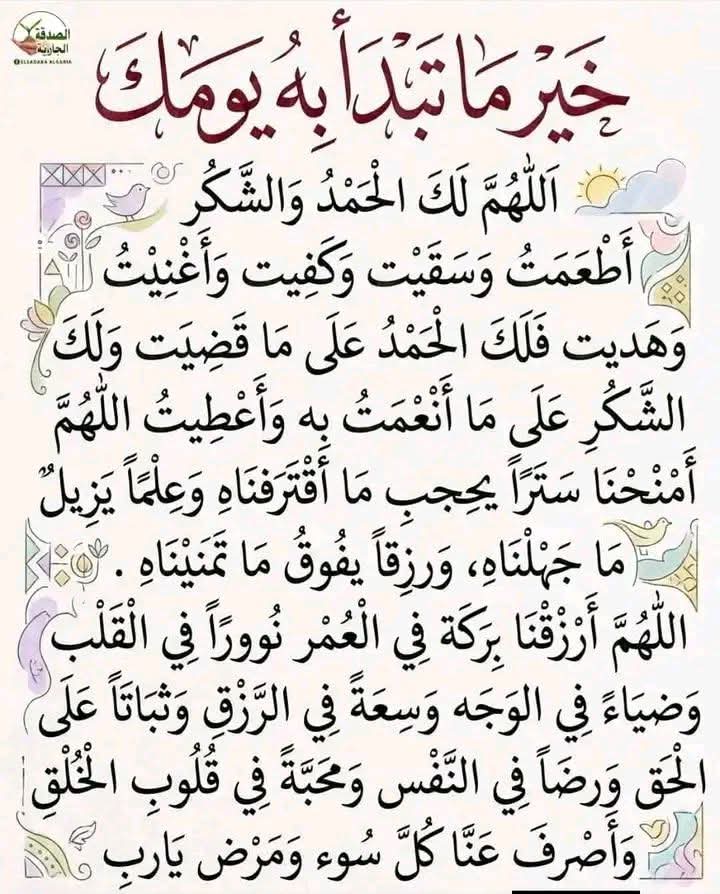 الصدقة
الجارية
ELSADAKA ALGARIA
خَيْر مَا تَبْدَأ بِهُ يَومَكَ
اَللّٰهُمَّ لَكَ الْحَمْدُ وَالشَّكُر
أَطْعَمَتُ وَسَقَيْت وَكَفِيت وَأَغْنِيْتُ
وَهَديت فَلَكَ الْحَمْدُ عَلَى مَا قَضِيَت وَلَكَ
الشَّكُرِ عَلَى مَا أَنْعْمَتُ بِه وَأَعْطِيتُ اللّٰهُمَّ
أَمْنْحْنَا سَتَرَاً يحِجبِ مَا أَقْتَرَفنَاهِ وَعِلْمَاً يَزِيلٌ
مَا جَهْلْنَاهِ، وَرزِقاً يفُوقُ مَا تَمَنيْنَاهِ .
اللّٰهُمَّ أَرْزْقْنَا بِرَكَة فِي الْعُمْر نُوورَاً فِي الْقَلْب
وَضيَاءً فِي الوَجَه وَسِعَةً فِي الرَّزْقِ وَثبَاتَاً عَلَى
الْحَق وَرضَاً فِي النَّفْس وَمحَبَّةً فِي قُلُوبِ الْخُلْقِ
وَأَصْرفَ عَنَّا كُلَّ سُوء وَمَرْض يَاربِ